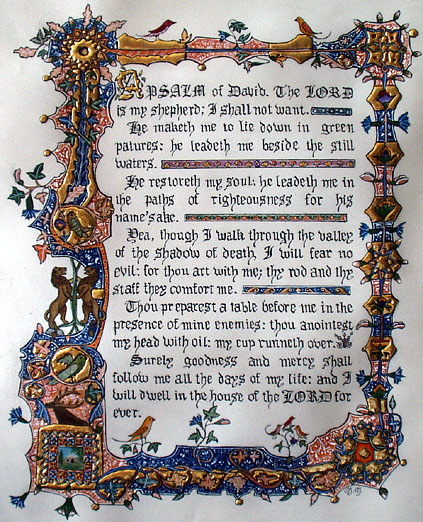 A PSALM of David. The LORD
is my shepherd; I shall not want.
He maketh me to lie down in green
patures: he leadeth me beside the still
waters.
He restoreth my soul: he leadeth me in
the paths of righteousness for his
name'sake.
Yea, though I walk through the valley
of the shadow of death, I will fear no
evil: for thou art with me; thy rod and thy
staff they comfort me.
Thou preparest a table before me in the
presence of mine enemies: thou anointest
my head with oil; my cup runneth over.
Surely goodness and mercy shall
follow me all the days of my life: and I
will dwell in the house of the LORD for
ever.